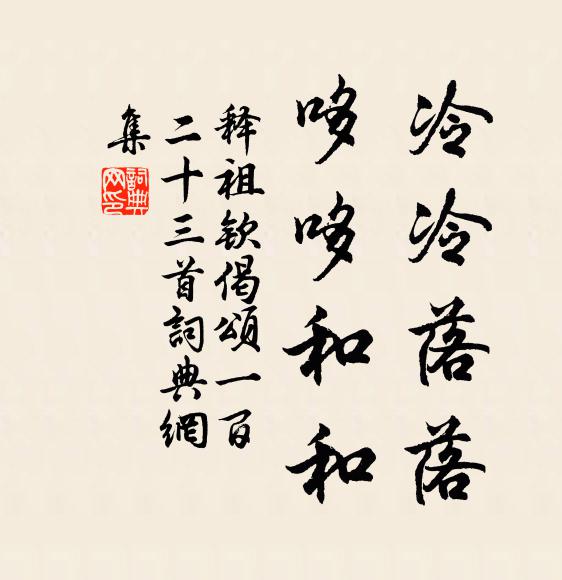 冷冷落落
哆哆和和
释祖钦偈颂一百
二十三首詞典網
集
詞典
网印